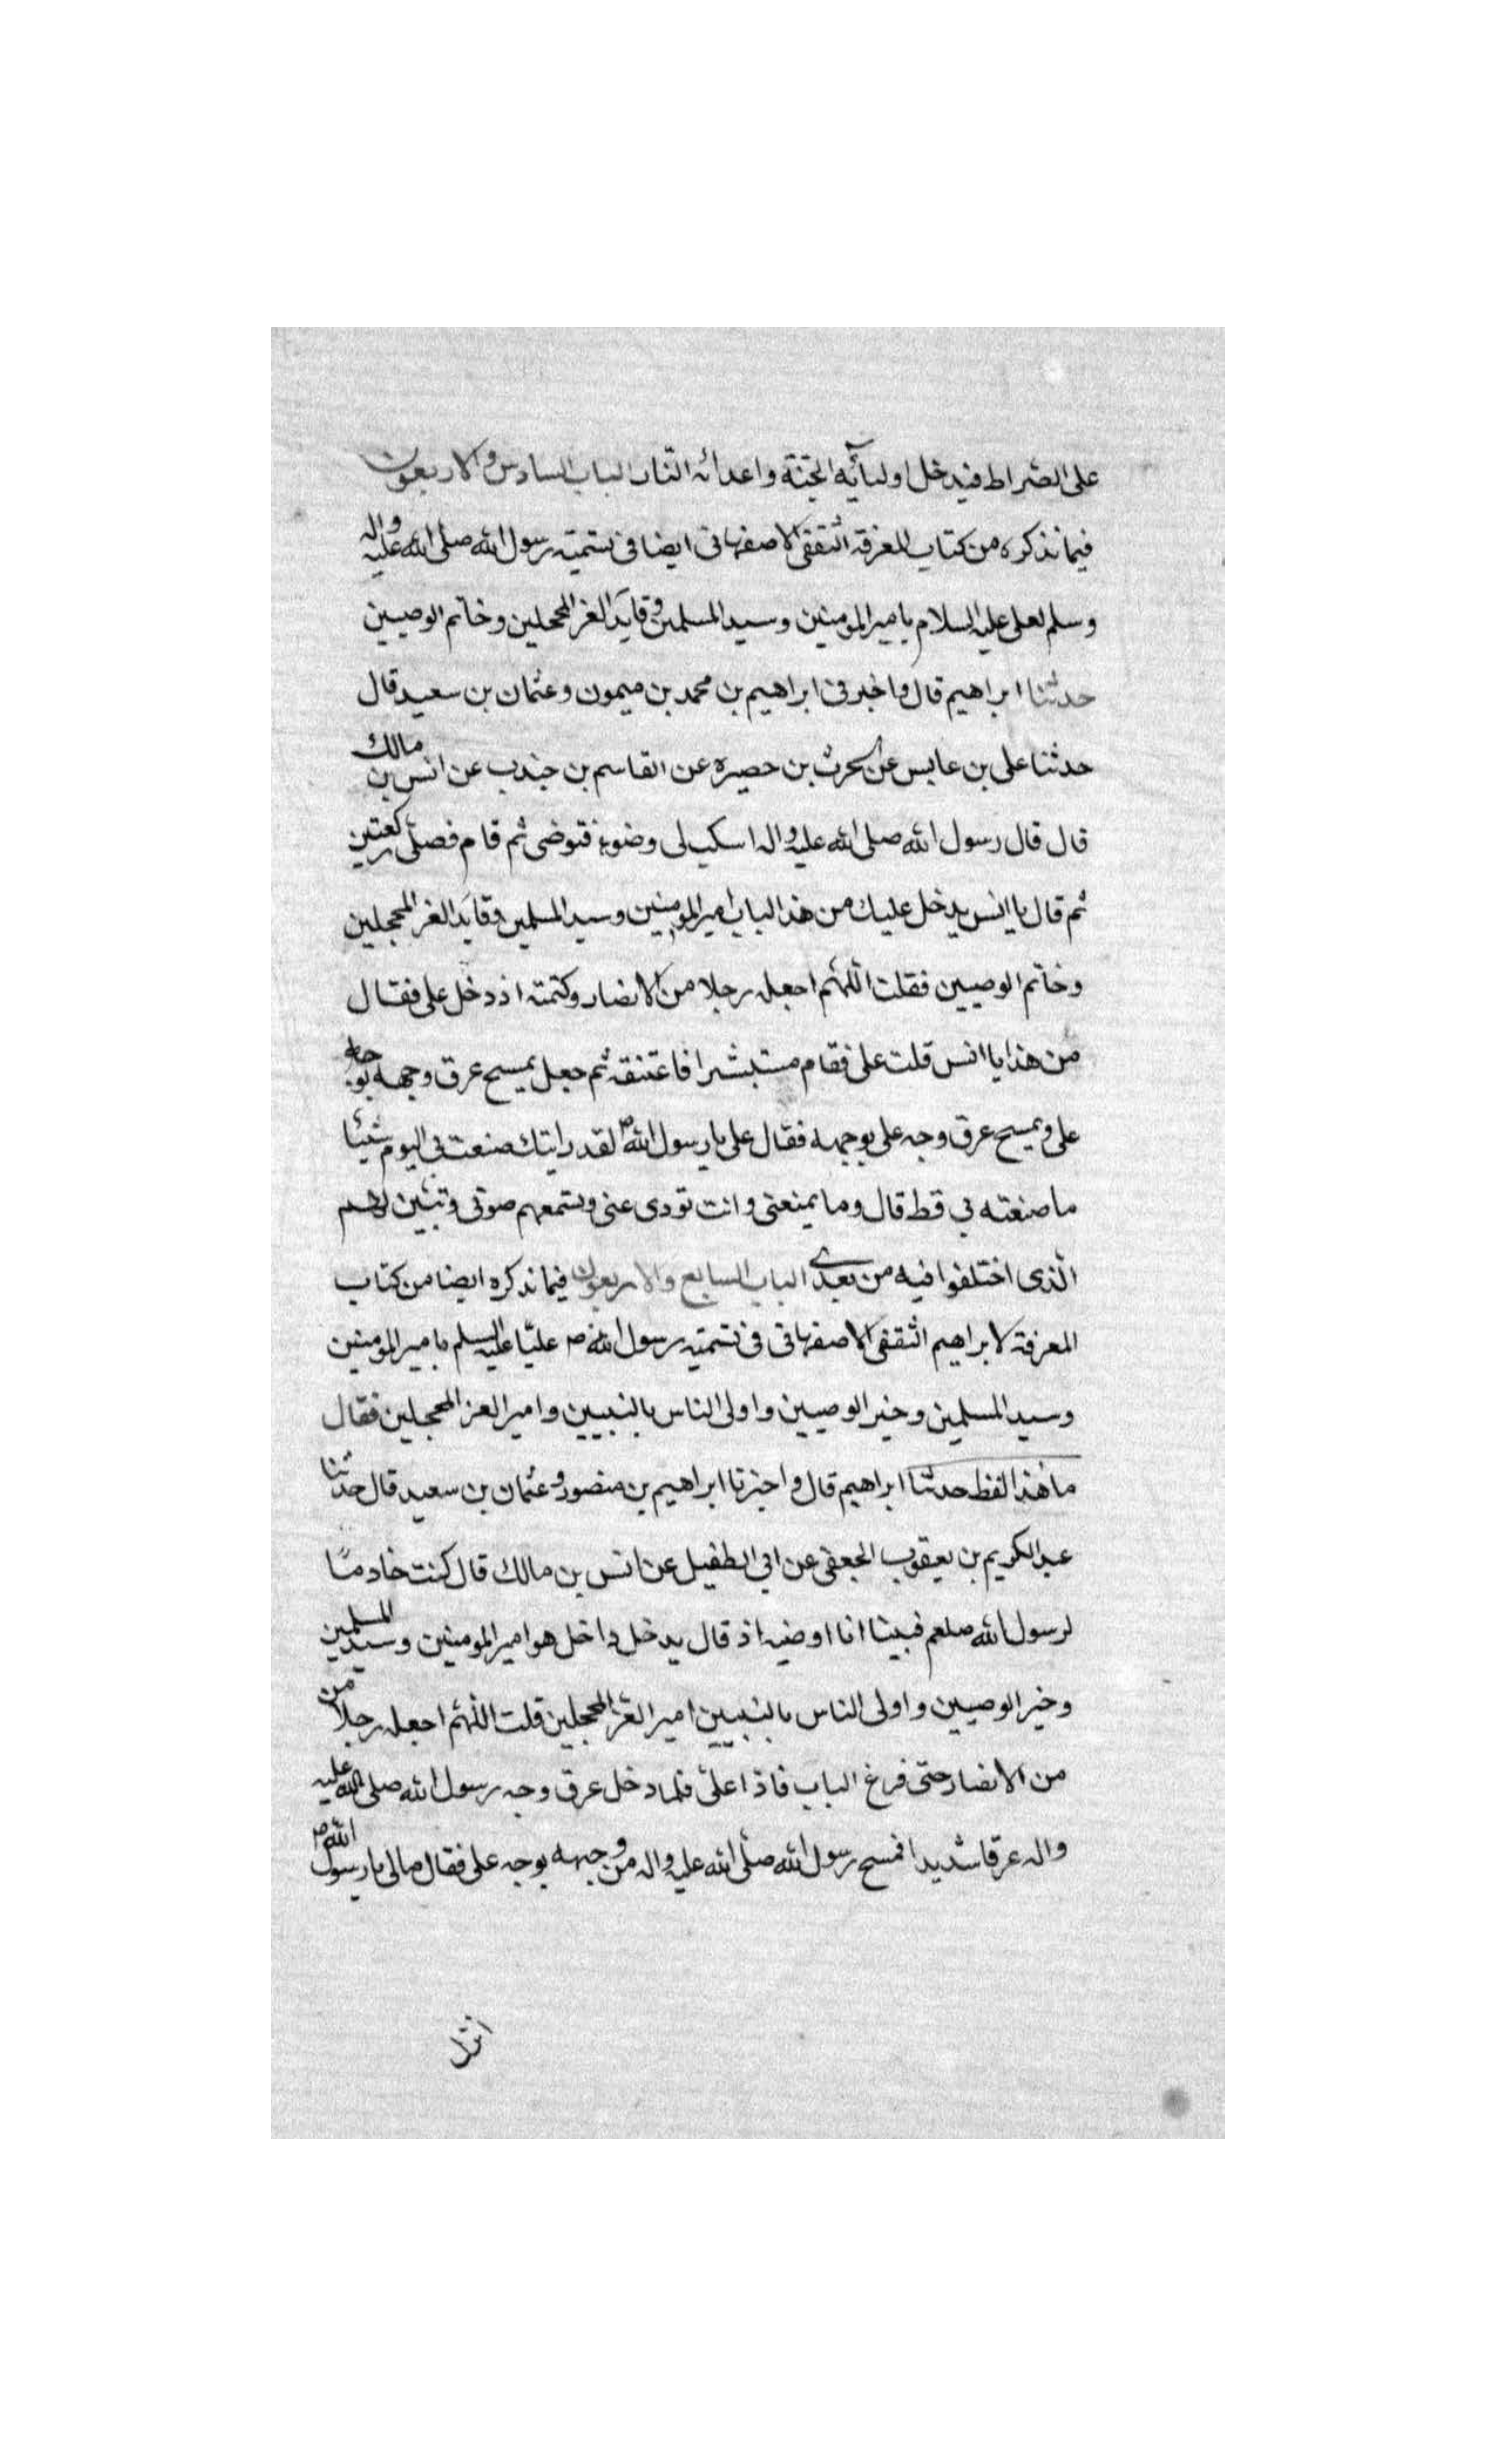 على الصراط فيدخل اوليآئه الجنة واعدائه النار الباب السادس والاربعون
فيما نذكره من كتاب المعرفة الثقفى الاصفهانى ايضا فى تسميته رسول الله صلى الله عليه واله
وسلم لعلى عليه السلام بامير المومنين وسيد المسلمين وقايد الغر المحجلين وخاتم الوصيين
حدثنا ابراهيم قال واخبرنى ابراهيم بن محمد بن ميمون وعثمان بن سعيد قال
حدثنا على بن عابس عن الحرث بن حصيره عن القاسم بن جندب عن انس بن مالك
قال قال رسول الله صلى الله عليه واله اسكب لى وضوء فتوضى ثم قام فصلى ركعتين
ثم قال يا انس يدخل عليك من هذا الباب امير المومنين وسيد المسلمين وقايد الغر المحجلين
وخاتم الوصيين فقلت اللهم اجعله رجلا من الانصار وكتمته اذ دخل على فقال
من هذا يا انس قلت على فقام مستبشرا فاعتنقه ثم جعل يمسح عرق وجهه بوجه
على ويمسح عرق وجه على بوجهه فقال على يا رسول الله ص لقد رايتك صنعت بى اليوم شيئا
ما صنعته بي قط قال وما يمنعنى وانت تودى عنى وتسمعهم صوتى وتبين لهم
الذى اختلفوا فيه من بعدى الباب السابع والاربعون فيما نذكره ايضا من كتاب
المعرفة لابراهيم الثقفى الاصفهانى فى تسميته رسول الله ص عليا عليه السلم بامير المومنين
وسيد المسلمين وخير الوصيين واولى الناس بالنبيين وامير الغر المحجلين فقال
ما هذا لفظه حدثنا ابراهيم قال واخبرنا ابراهيم بن منصور وعثمان بن سعيد قال حدثنا
عبد الكريم بن يعقوب الجعفى عن ابي الطفيل عن انس بن مالك قال كنت خادمًا
لرسول الله صلعم فبينا انا اوضيه اذ قال يدخل داخل هو امير المومنين وسيد المسلمين
وخير الوصيين واولى الناس بالنبيين امير الغر المحجلين قلت اللهم اجعله رجلا من
من الانصار حتى قرع الباب فاذا على فلما دخل عرق وجه رسول الله صلى الله عليه
واله عرقا شديدا فمسح رسول الله صلى الله عليه واله من وجهه بوجه على فقال مالى يا رسول الله ص
انزل